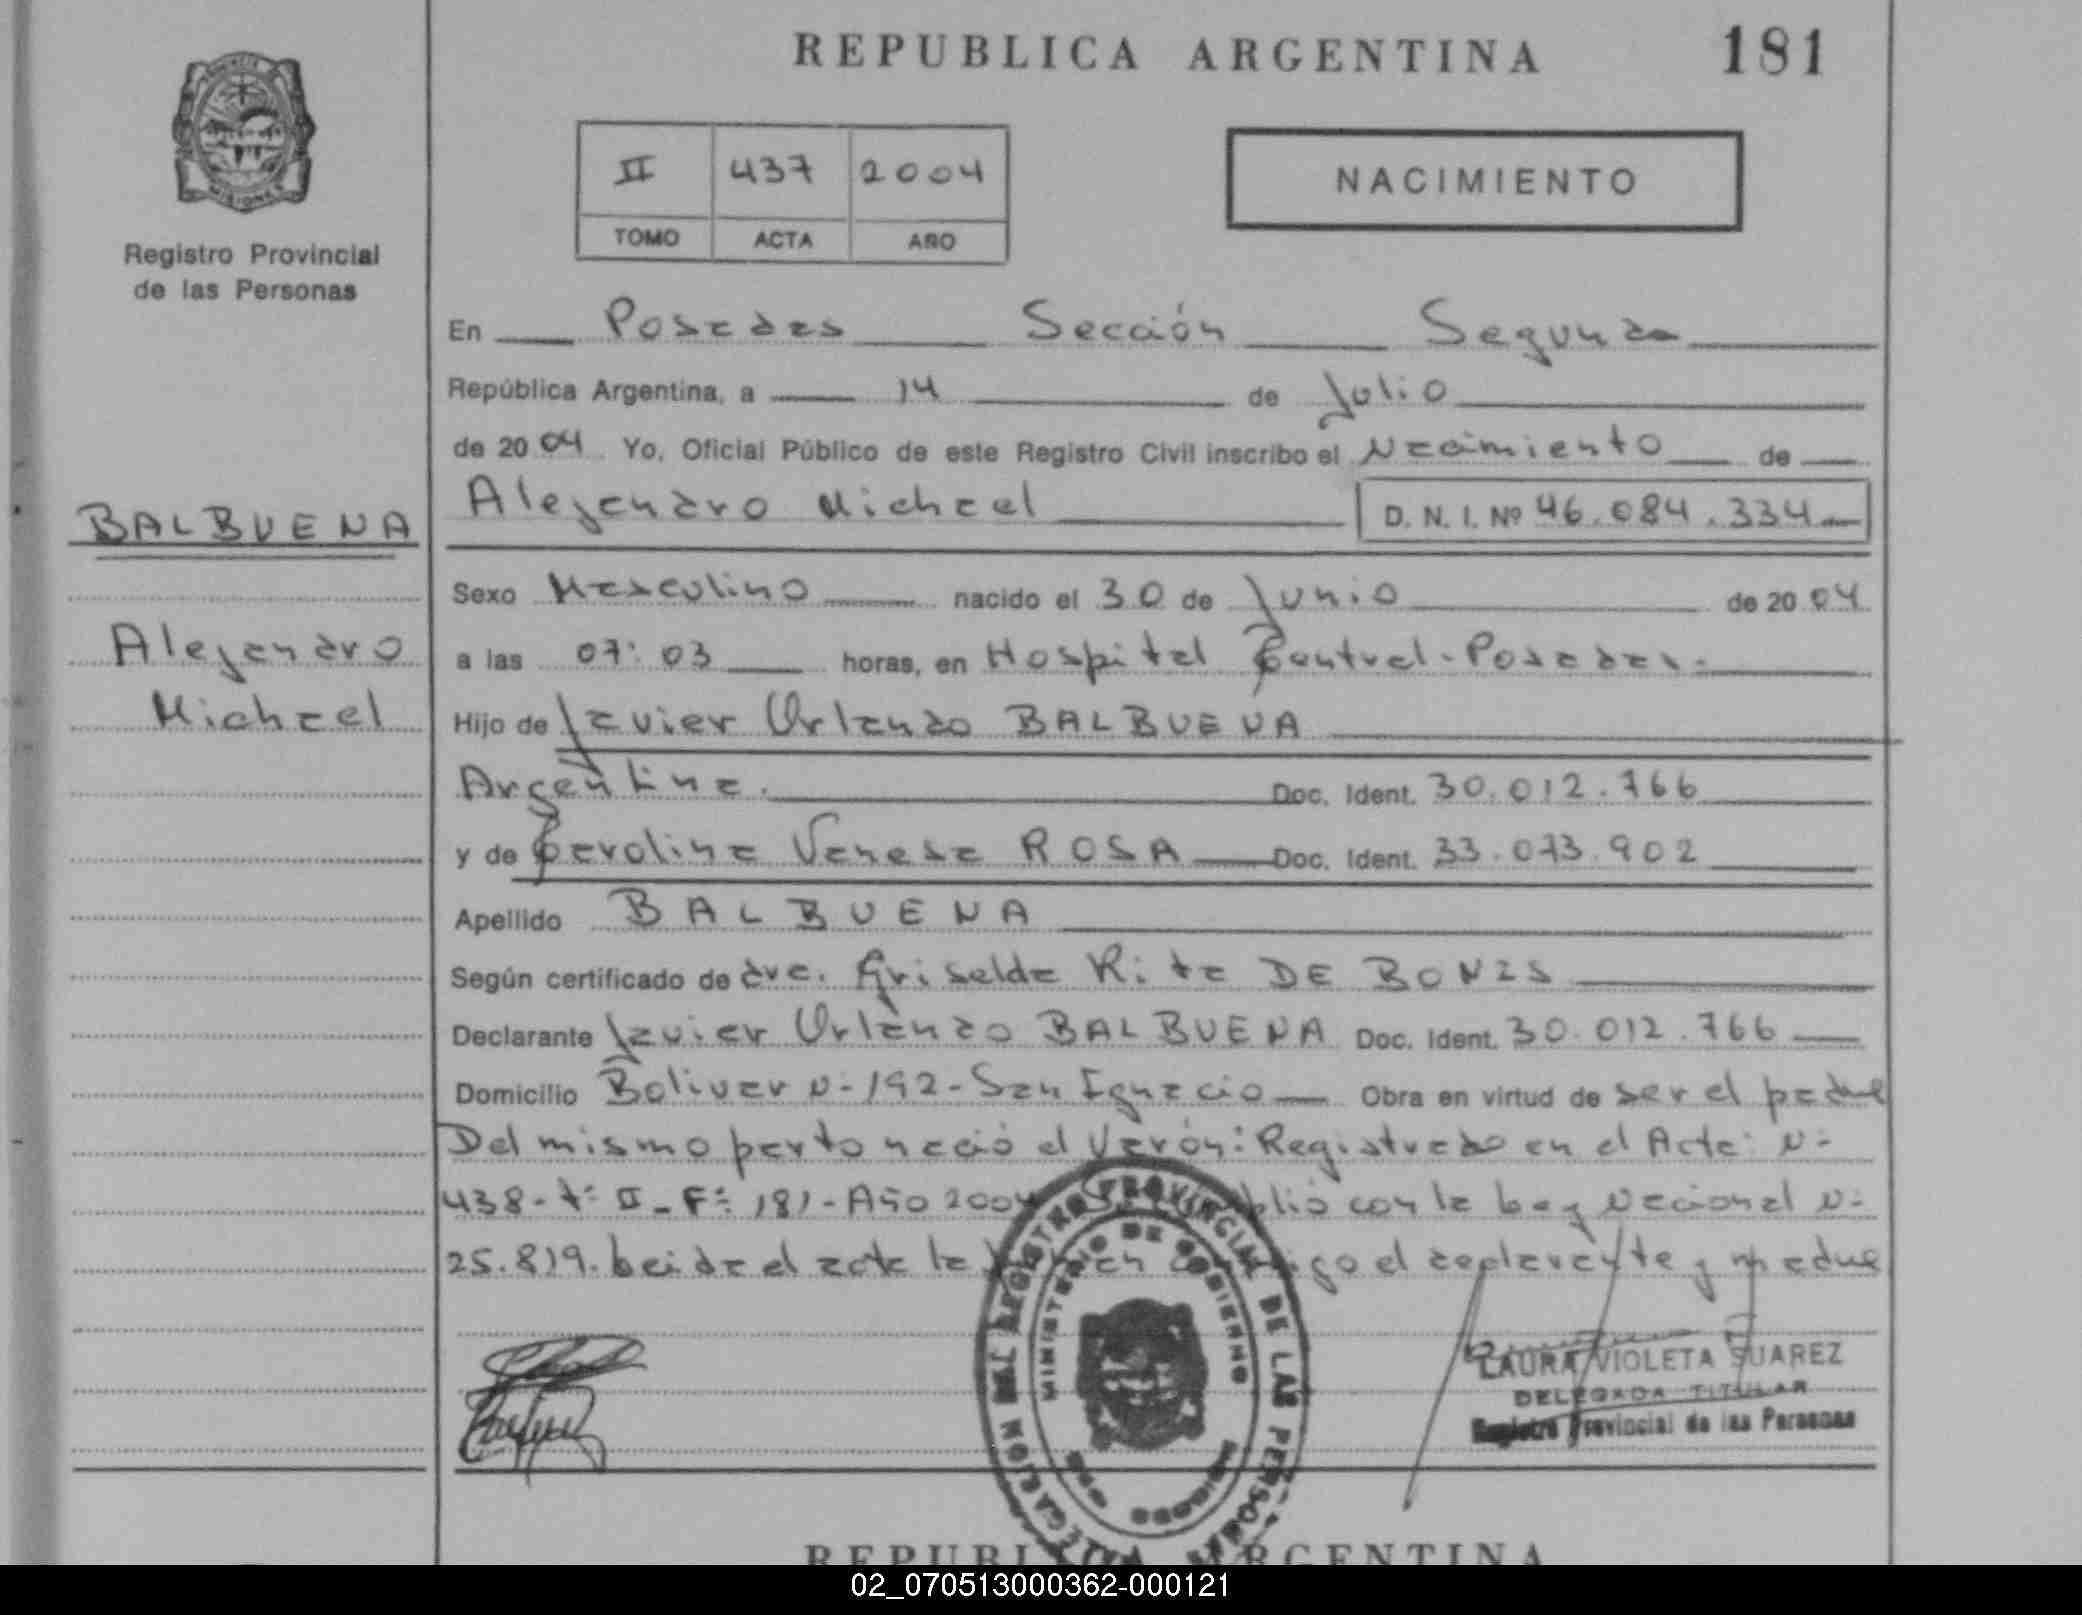 REPUBLICA ARGENTINA 181
PROVINCIA DE
MISIONES
Registro Provincial
de las Personas
II 437 2004
TOMO ACTA AÑO
NACIMIENTO
En Posadas Sección Segunda
República Argentina, a 14 de Julio
de 2004 Yo, Oficial Público de este Registro Civil inscribo el Nacimiento de
BALBUENA
Alejandro Michael D. N. I. Nº 46.084.334
Sexo Masculino nacido el 30 de Junio de 2004
Alejandro
a las 07:03 horas, en Hospital Central - Posadas.
Michael
Hijo de Javier Orlando BALBUENA
Argentina. Doc. Ident. 30.012.766
y de Carolina Vanesa ROSA Doc. Ident. 33.073.902
Apellido BALBUENA
Según certificado de dra. Griselda Rita DE BONIS
Declarante Javier Orlando BALBUENA Doc. Ident. 30.012.766
Domicilio Bolivar Nº 192 - San Ignacio Obra en virtud de ser el padre
Del mismo parto nació el Varón: Registrado en el Acta: Nº
438 - Tº II - Fº 181 - Año 2004 con la Ley Nacional Nº
25.819. Leida el acta la el declarante y madre
DELEGACION DEL REGISTRO PROVINCIAL DE LAS PERSONAS
MINISTERIO DE GOBIERNO
LAURA VIOLETA SUAREZ
DELEGADA TITULAR
Registro Provincial de las Personas
REPUBLICA ARGENTINA
02_070513000362-000121